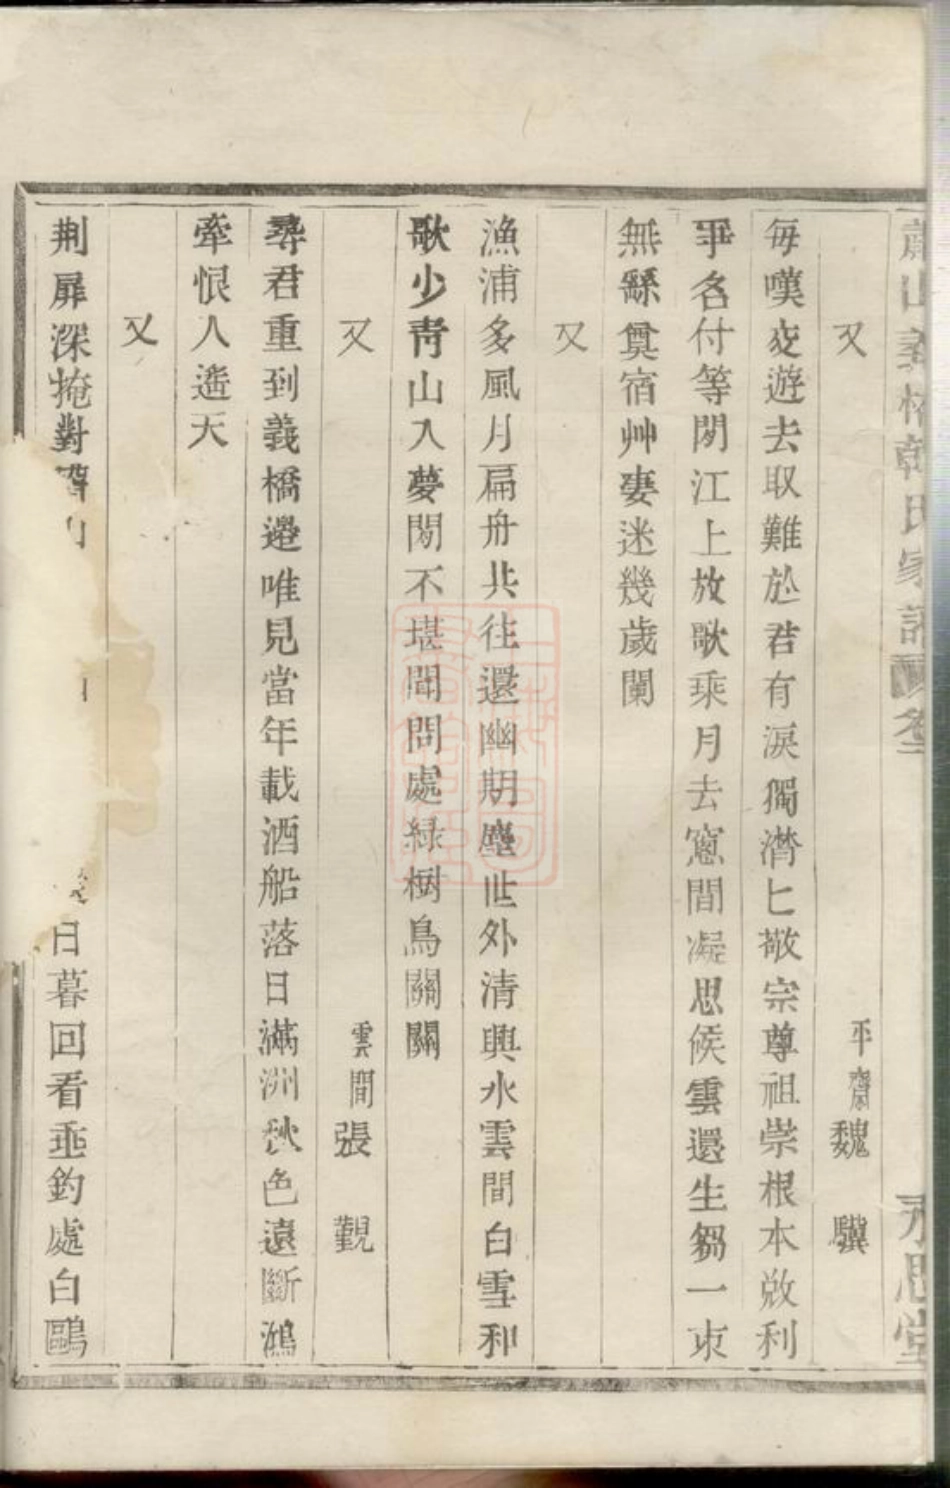 蕭山義橋韓氏家譜 卷
永思堂
又 平齋魏 驥
每嘆交遊去取難於君有淚獨潸匕敬宗尊祖崇根本敚利
爭名付等閒江上放歌乘月去窻間凝思候雲還生芻一束
無繇奠宿艸萋迷幾歲闌
又
漁浦多風月扁舟共往還幽期塵世外清興水雲間白雪和
歌少青山入夢閒不堪問問處緑樹鳥關關
又 雲間張 觀
尋君重到義橋邉唯見當年載酒船落日滿洲秋色遠斷鴻
牽恨人遙天
又
荆扉深掩對
日暮回看垂釣處白鷗